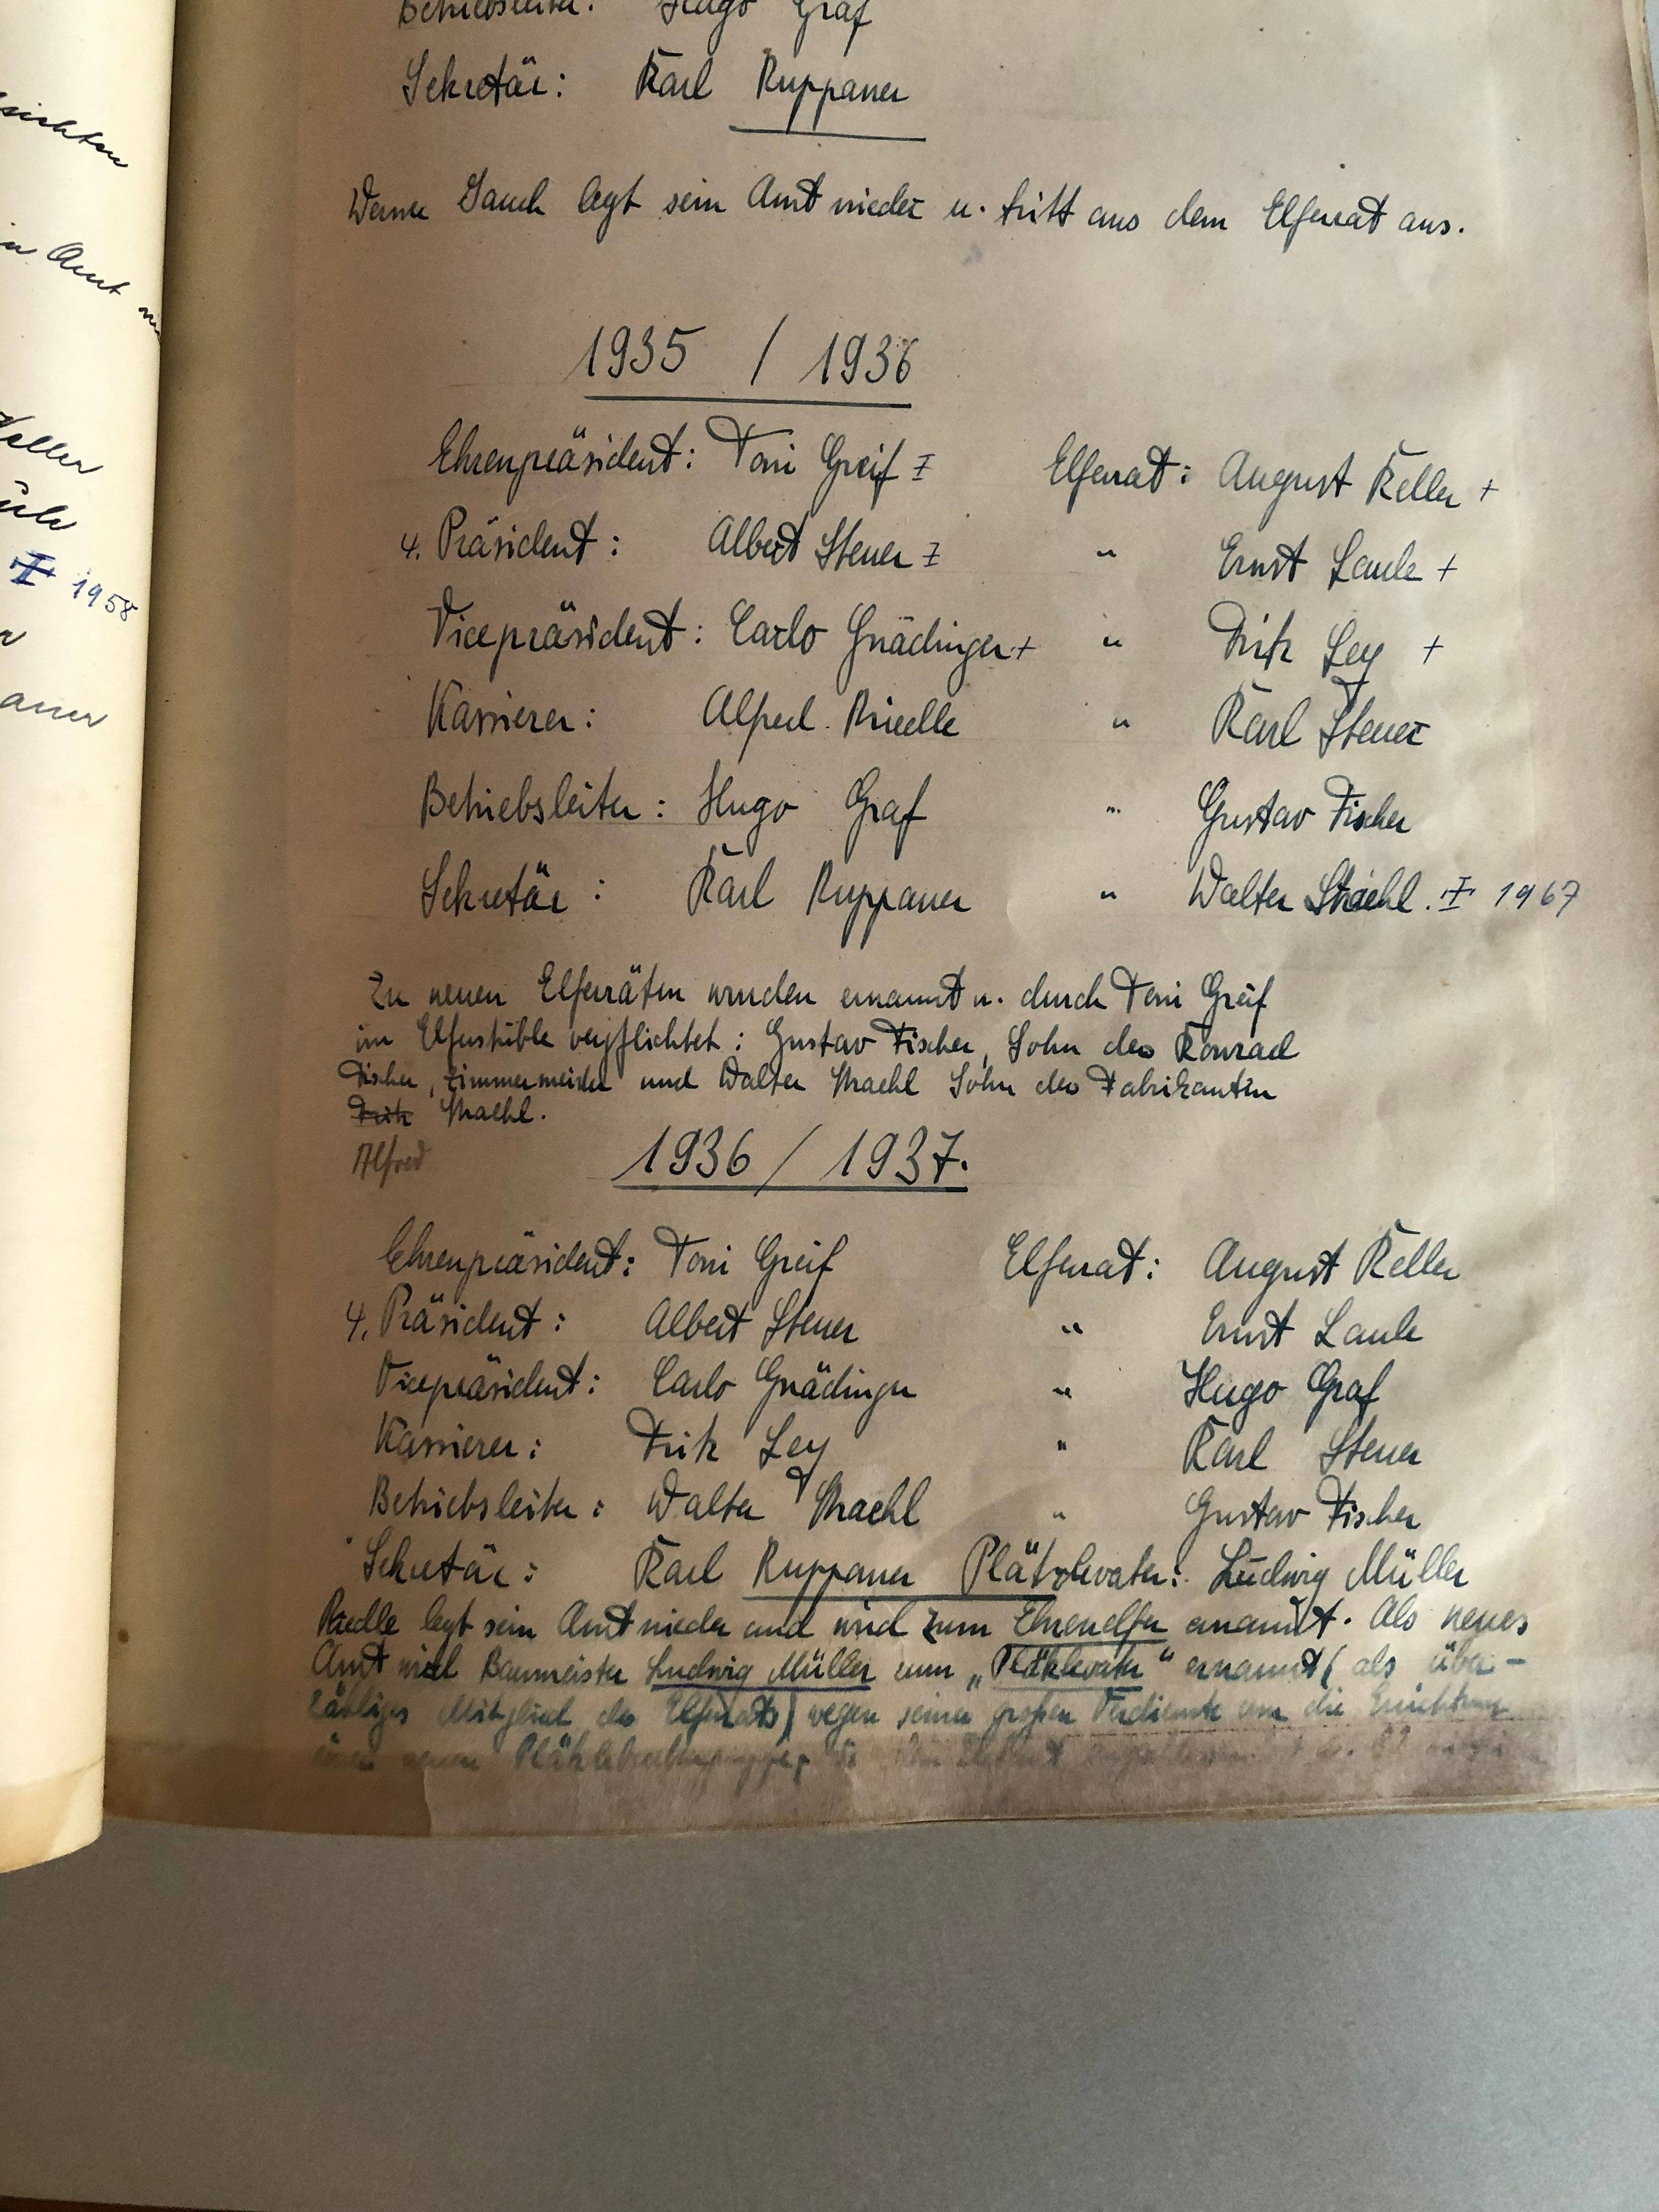 sichten
in Amt
Keller
1958
Betriebsleiter: Hugo Graf
Sekretär: Karl Ruppaner
Werner Jauch legt sein Amt nieder u. tritt aus dem Elferrat aus.
1935 / 1936
Ehrenpräsident: Toni Greif ‡ Elferrat: August Keller +
4. Präsident: Albert Steuer ‡ " Ernst Laule +
Vicepräsident: Carlo Gnädinger + " Fritz Ley +
Kassierer: Alfred Riedle " Karl Steuer
Betriebsleiter: Hugo Graf " Gustav Fischer
Sekretär: Karl Ruppaner " Walter Straehl. ‡ 1967
Zu neuen Elferräten wurden ernannt u. durch Toni Greif
im Elferstüble verpflichtet: Gustav Fischer, Sohn des Konrad
Fischer, Zimmermeister und Walter Straehl Sohn des Fabrikanten
Fritz Straehl.
Alfred
1936 / 1937.
Ehrenpräsident: Toni Greif Elferrat: August Keller
4. Präsident: Albert Steuer " Ernst Laule
Vicepräsident: Carlo Gnädinger " Hugo Graf
Kassierer: Fritz Ley " Karl Steuer
Betriebsleiter: Walter Straehl " Gustav Fischer
Sekretär: Karl Ruppaner Plätzlevater: Ludwig Müller
Riedle legt sein Amt nieder und wird zum Ehrenelfer ernannt. Als neues
Amt wird Baumeister Ludwig Müller zum „Plätzlevater" ernannt (als über-
zähliges Mitglied des Elferrats) wegen seiner großen Verdienste um die Errichtung
einer neuen Plätzlebubengruppe,